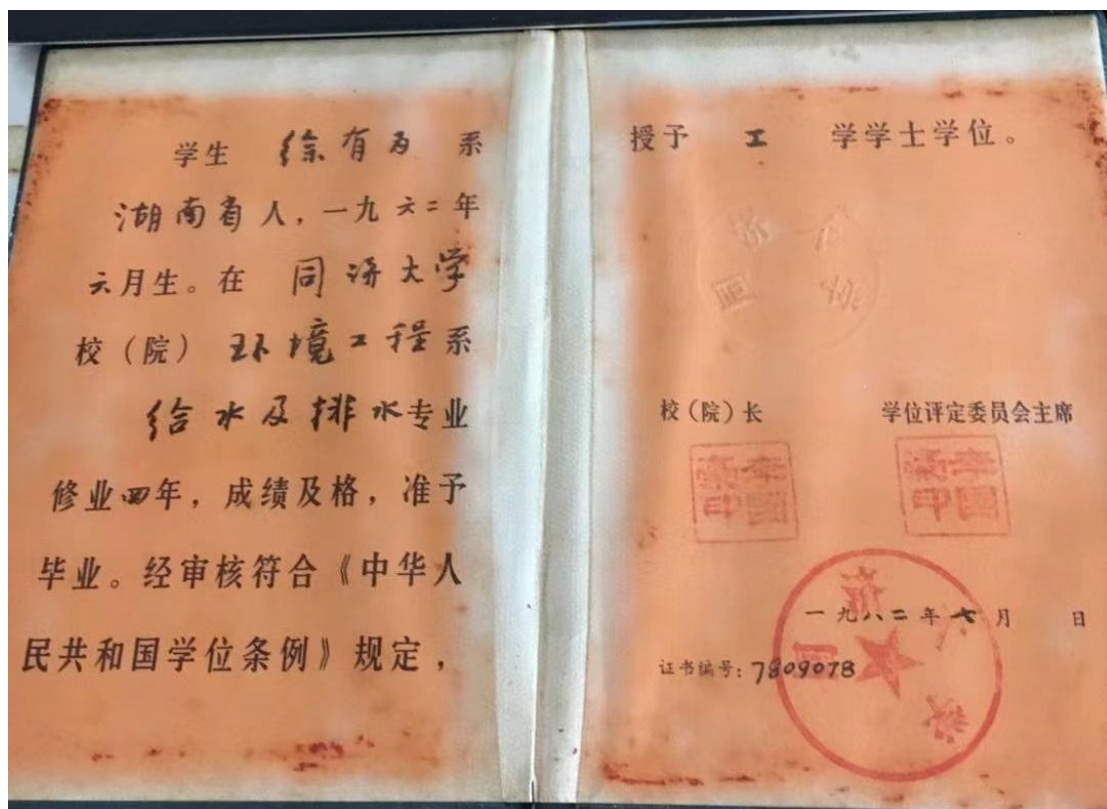 学生 徐有为 系
湖南省人，一九六二年
六月生。在 同济大学
校（院） 环境工程系
给水及排水专业
修业四年，成绩及格，准予
毕业。经审核符合《中华人
民共和国学位条例》规定，
授予 工 学学士学位。
同济大学
校（院）长 学位评定委员会主席
李国豪印 李国豪印
一九八二年七月 日
证书编号：7809078
同济大学